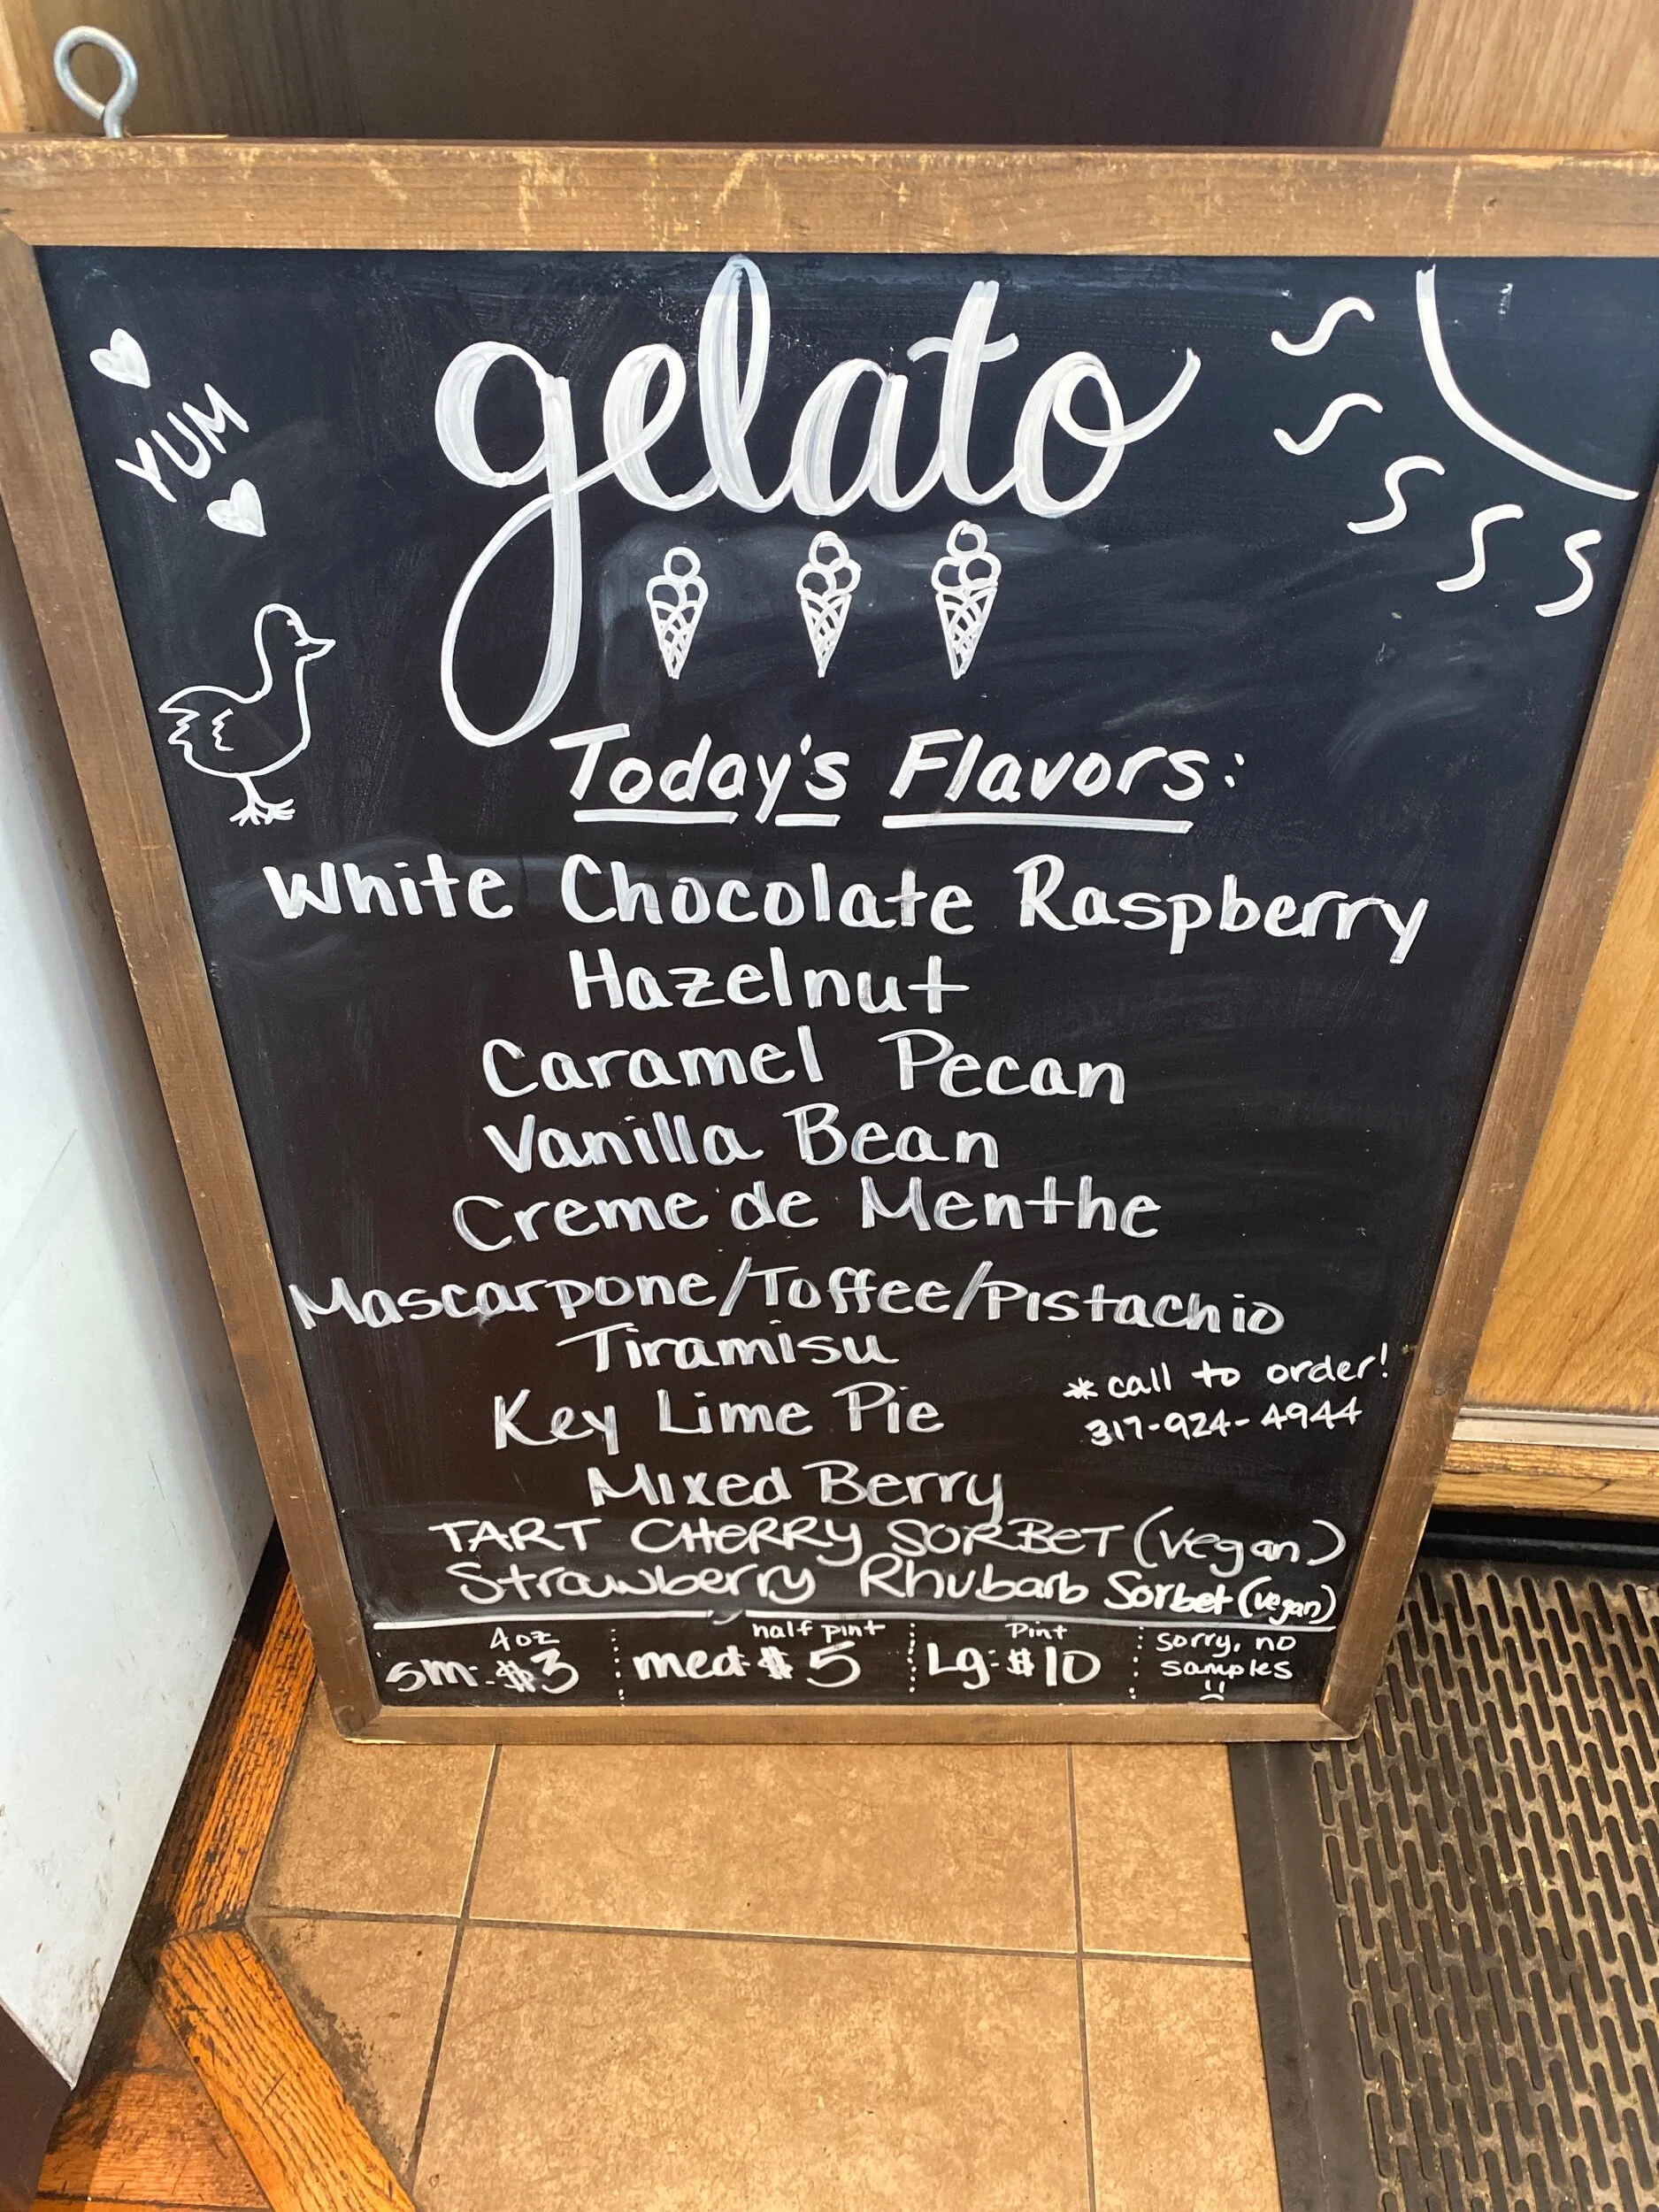 gelato
YUM
Today's Flavors:
White Chocolate Raspberry
Hazelnut
Caramel Pecan
Vanilla Bean
Creme de Menthe
Mascarpone/Toffee/Pistachio
Tiramisu
Key Lime Pie
*call to order!
317-924-4944
Mixed Berry
TART CHERRY SORBET (vegan)
Strawberry Rhubarb Sorbet (vegan)
4oz
sm: $3
half pint
med $5
Pint
Lg: $10
sorry, no
samples